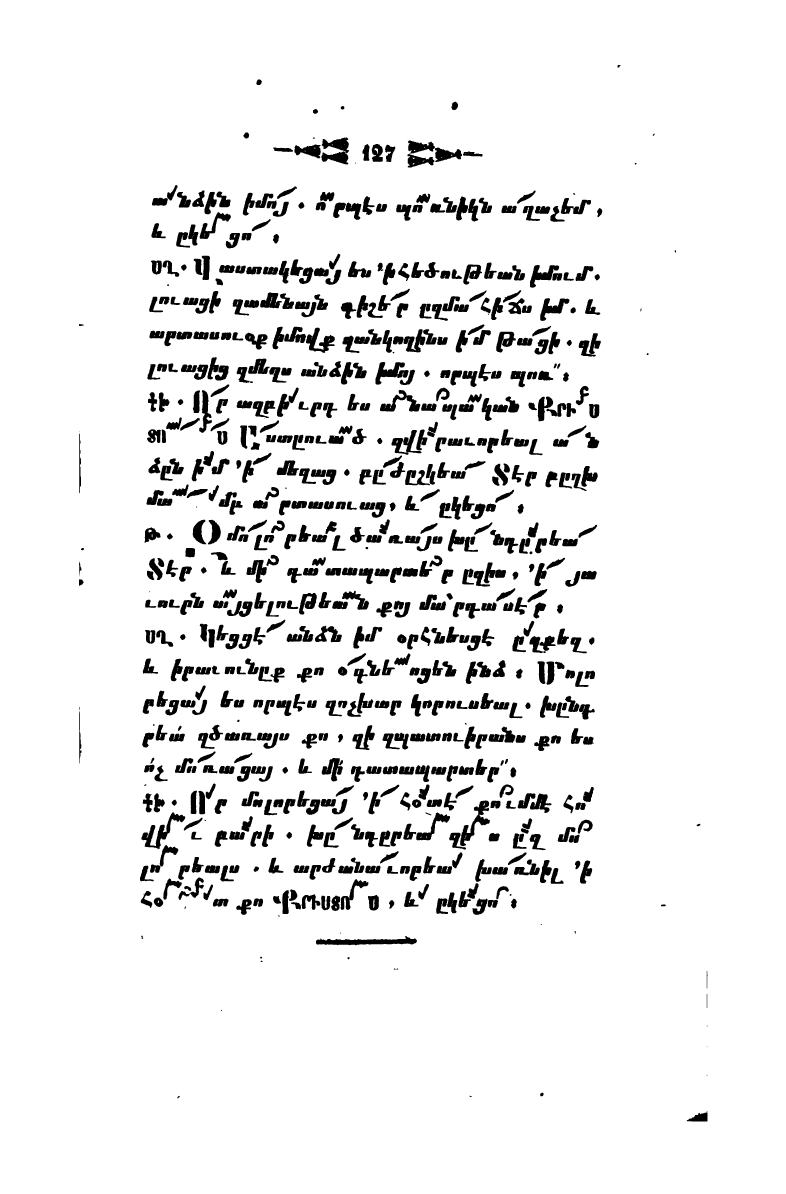 127
անձին իմոյ . որպէս պոռնիկն աղաչեմ ,
և ըկեցո ։
ՍՂ. Վաստակեցայ ես ՚ի հեծութեան իմում .
լուացի զամենայն գիշեր ըզմահիճս իմ . և
արտասուօք իմովք զանկողինս իմ թացի . զի
լուացից զմեղս անձին իմոյ . որպէս պոռ՟ ։
ԷԻ . Որ աղբիւրդ ես անապական ՔՐԻՍ
ՏՈՍ Աստըուած . զվիրաւորեալ ան
ձըն իմ ՚ի մեղաց . բըժըշկեա Տէր բըղխ
մամլ արտասուաց, և ըկեցո ։
Թ . Օ մոլորեալ ծառայս խընդըրեա
Տէր . և մի դատապարտեր ըզիս , ՚ի յա
ւուրն այցելութեան քոյ մարդասէր ։
ՍՂ . Կեցցէ անձն իմ օրհնեսցէ ըզքեզ .
և իրաւունըք քո օգնեսցեն ինձ ։ Մոլո
րեցայ ես որպէս զոչխար կորուսեալ . խընդ
րեա՛ զծառայս քո , զի զպատուիրանս քո ես
ոչ մոռացայ . և մի դատապարտեր՟ ։
ԷԻ . Որ մոլորեցայ ՚ի հօտէ քումմէ հո
վիւ բարի . խընդըրեա զիս ըզ մո
լորեալս . և արժանաւորեա խառնիլ ՚ի
հօտ քո ՔՐԻՍՏՈՍ , և ըկեցո ։